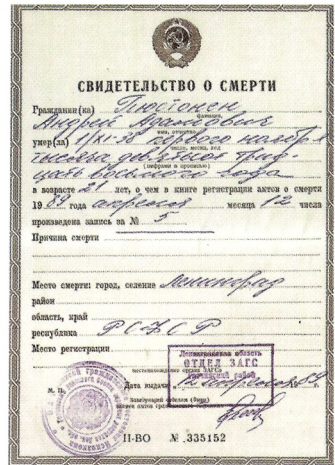 СВИДЕТЕЛЬСТВО О СМЕРТИ
Гражданин(ка) Тюстонен
фамилия,
Андрей Адамович
имя, отчество
умер(ла) 1/XI-38 первого ноября
число, месяц, год
тысяча девятьсот трид-
(цифрами и прописью)
цать восьмого года
в возрасте 21 лет, о чем в книге регистрации актов о смерти
1989 года апреля месяца 12 числа
произведена запись за № 5
Причина смерти
Место смерти: город, селение Ленинград
район
область, край
республика РСФСР
Место регистрации
Ленинградская область
ОТДЕЛ ЗАГС
район
наименование органа ЗАГСа
М. П.
Дата выдачи 12 апреля 89
Заведующий отделом (бюро)
записи актов гражданского
II-ВО № 335152